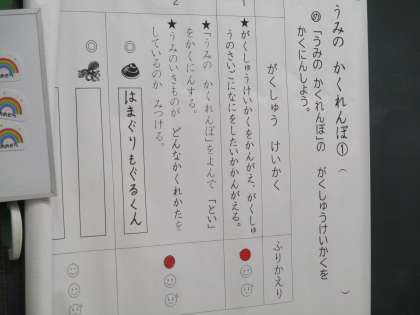 うみの かくれんぼ①（　　）
め「うみの かくれんぼ」の がくしゅうけいかくを
かくにんしよう。
がくしゅう けいかく
ふりかえり
1
★がくしゅうけいかくをかんがえ、がくしゅ
うのさいごになにをしたいかかんがえる。
2
★「うみの かくれんぼ」をよんで 「とい」
をかくにんする。
★うみのいきものが どんなかくれかたを
しているのか みつける。
◎
はまぐりもぐるくん
◎